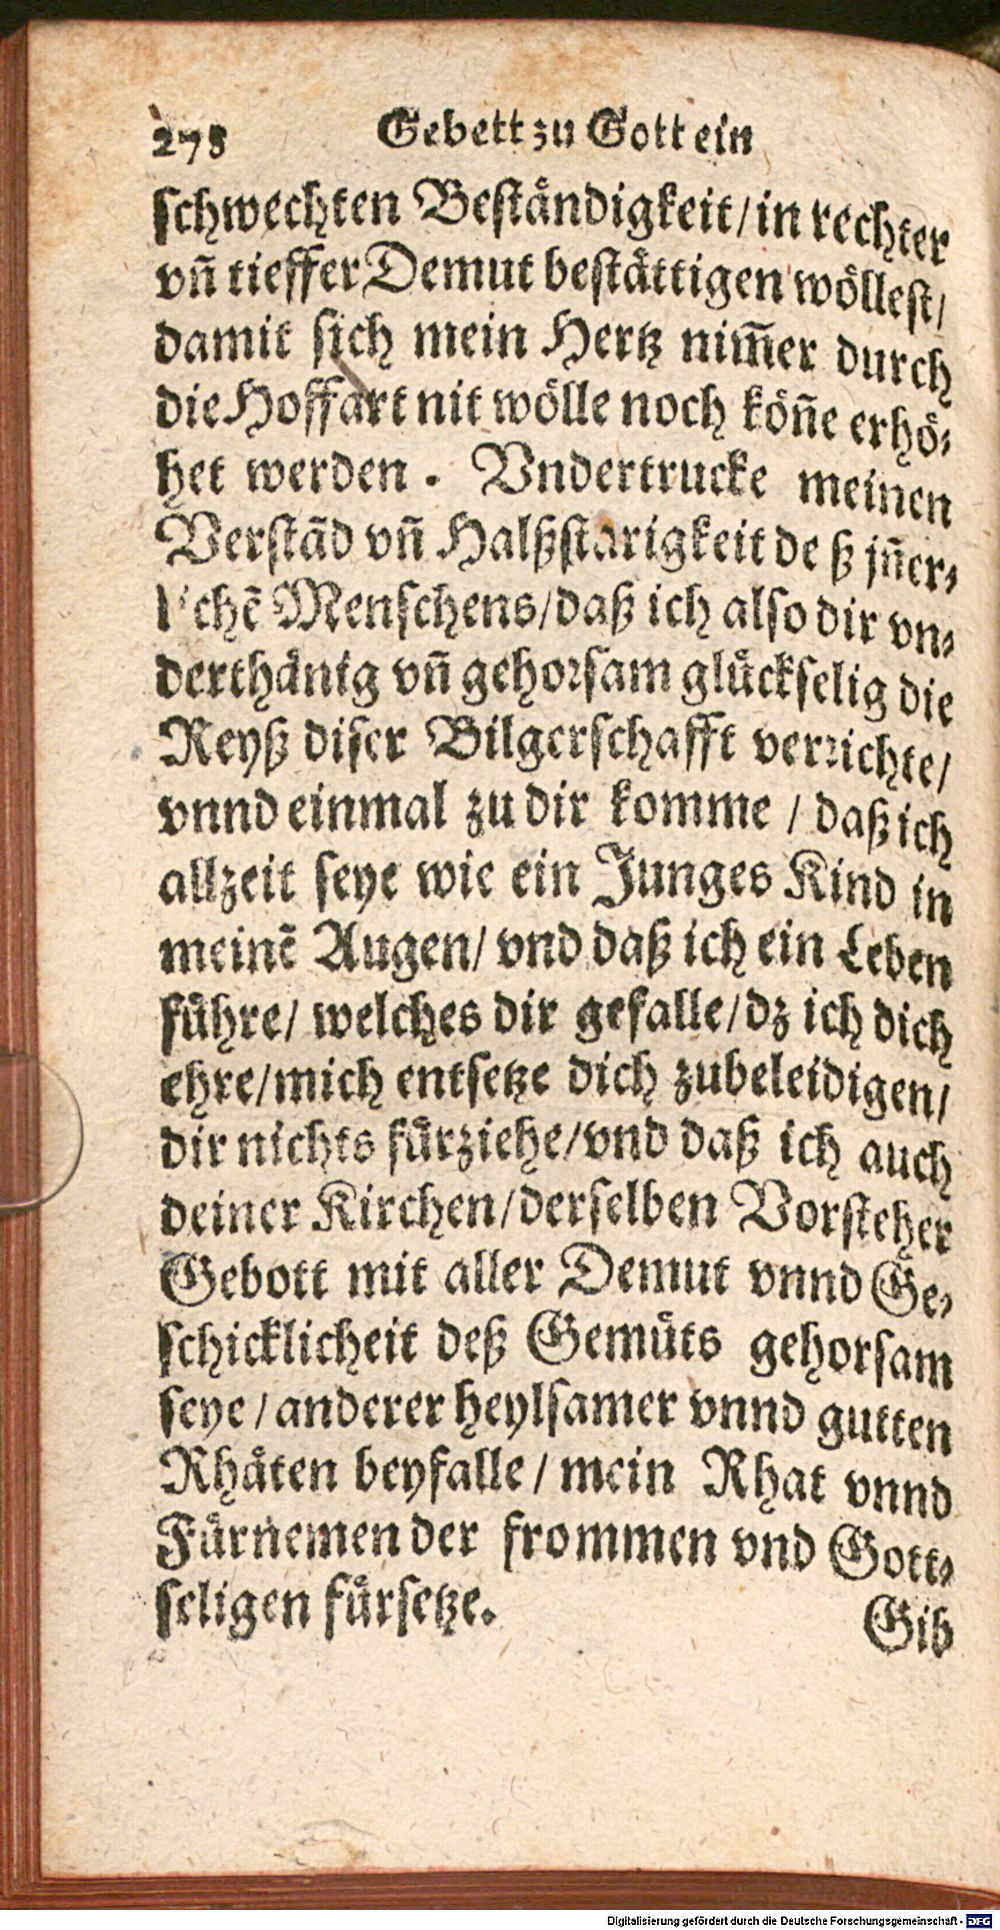 278 Gebett zu Gott ein
schwechten Beståndigkeit/in rechter
vñ tieffer Demut beståttigen wöllest/
damit sich mein Hertz nim̃er durch
die Hoffart nit wölle noch köñe erhö⸗
het werden. Vndertrucke meinen
Verstãd vñ Halßstarigkeit de ß jñer⸗
lichẽ Menschens/daß ich also dir vn⸗
derthånig vñ gehorsam glůckselig die
Reyß diser Bilgerschafft verrichte/
vnnd einmal zu dir komme / daß ich
allzeit seye wie ein Junges Kind in
meinẽ Augen/ vnd daß ich ein Leben
fůhre/ welches dir gefalle/dz ich dich
ehre/mich entsetze dich zubeleidigen/
dir nichts fůrziehe/vnd daß ich auch
deiner Kirchen/derselben Vorsteher
Gebott mit aller Demut vnnd Ge⸗
schicklicheit deß Gemůts gehorsam
seye / anderer heylsamer vnnd gutten
Rhåten beyfalle / mein Rhat vnnd
Fůrnemen der frommen vnd Gott⸗
seligen fůrsetze.
Gib
Digitalisierung gefördert durch die Deutsche Forschungsgemeinschaft - DFG